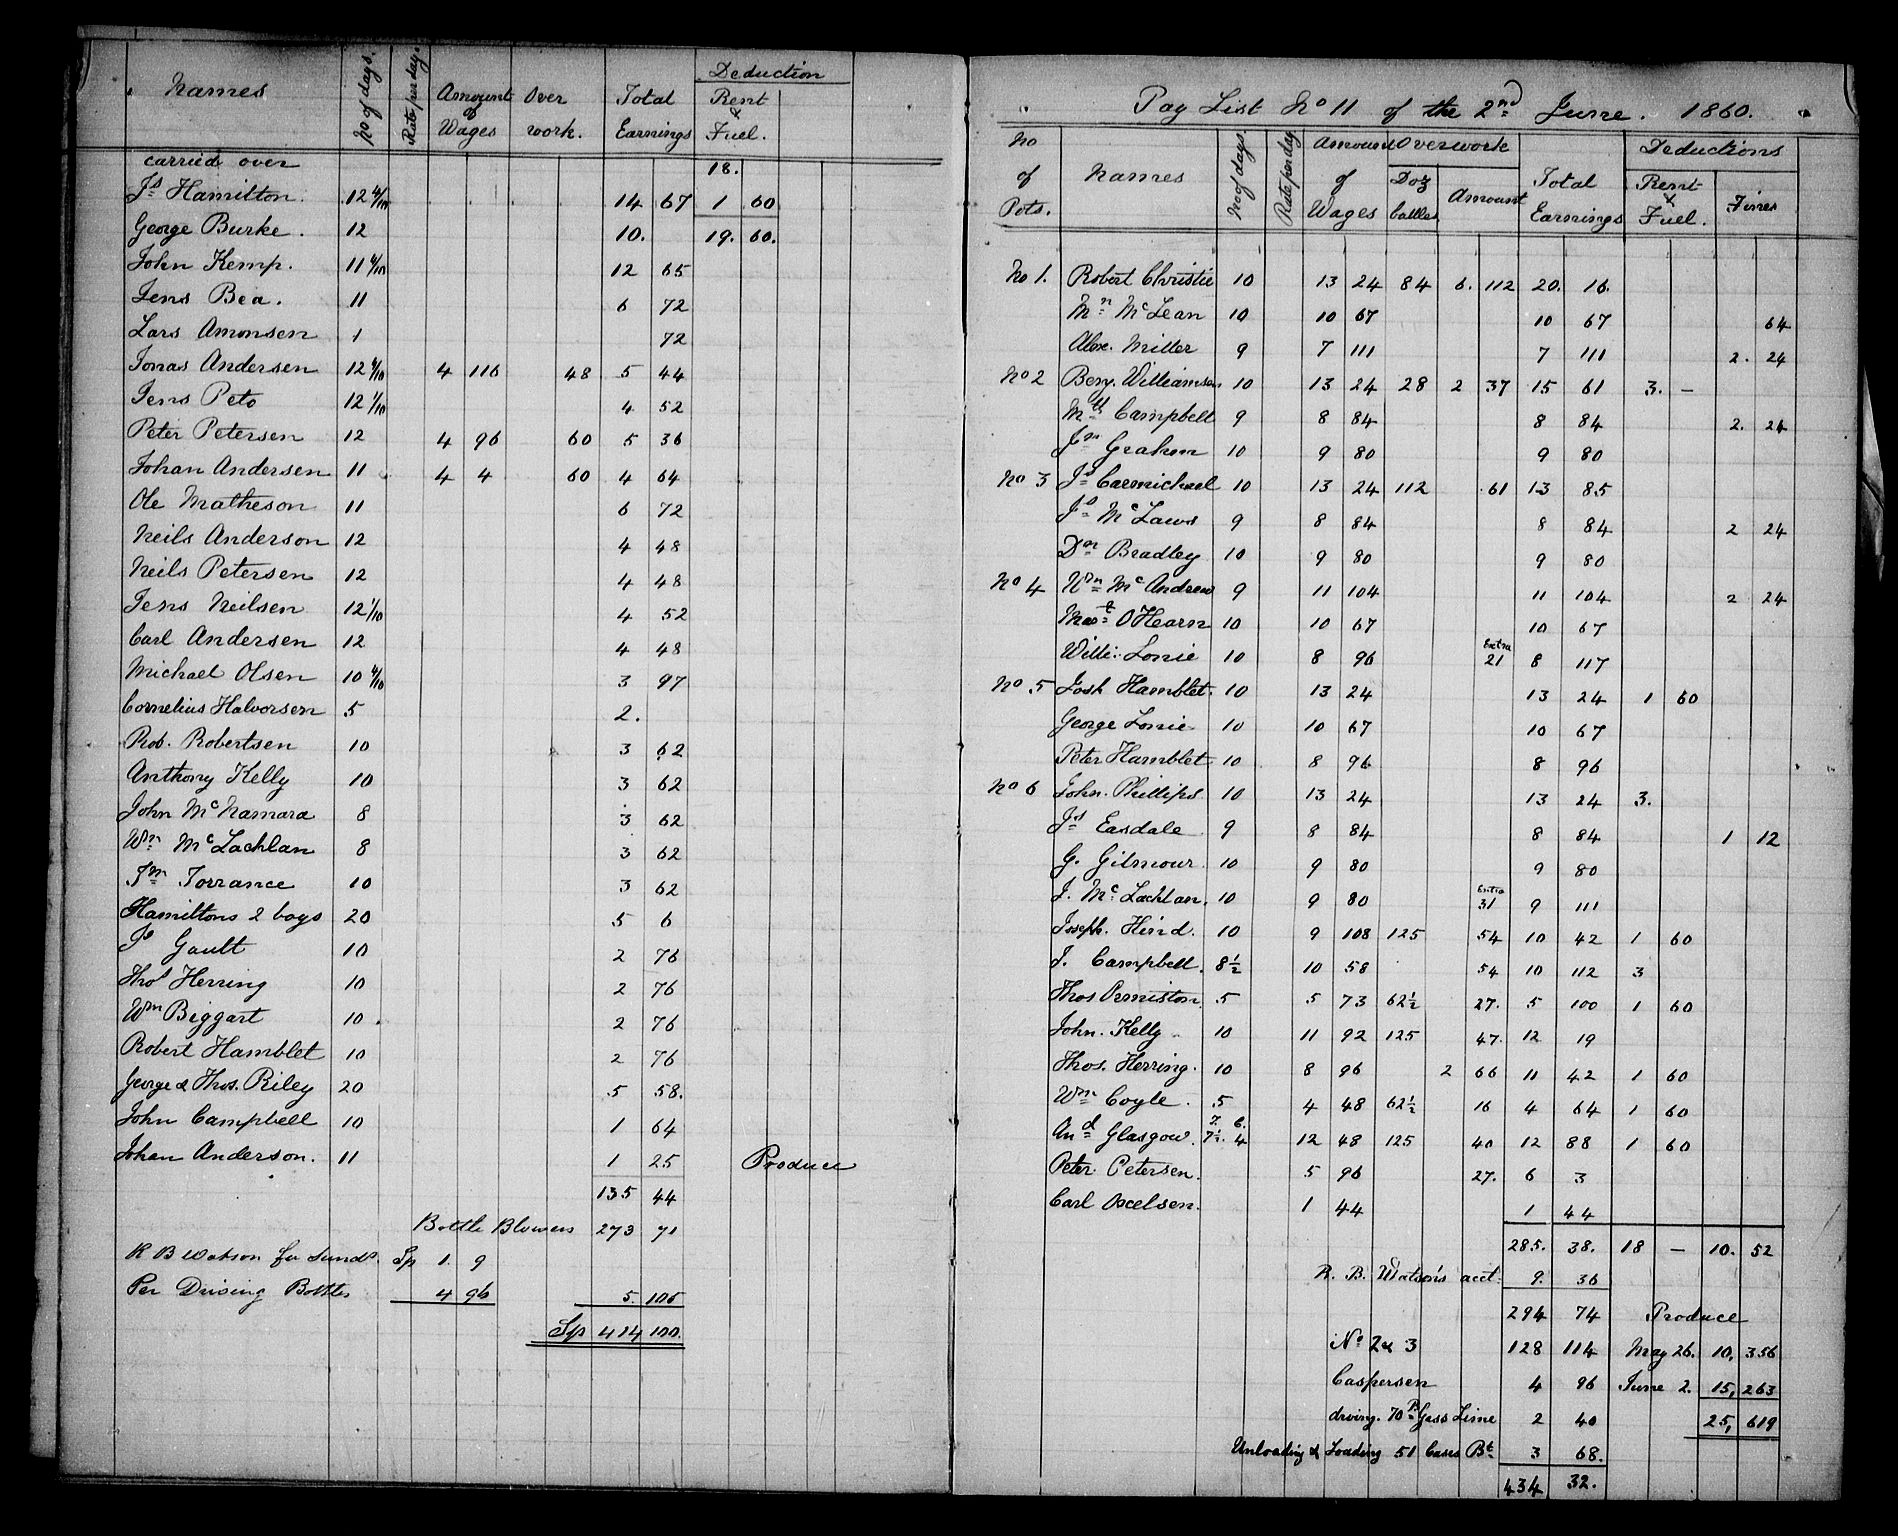 Names No of days. Rate per day. Amount of Wages Over work. Total Earnings Deduction Rent & Fuel.
carried over 18.
Js Hamilton. 12 4/10 14 67 1 60
George Burke. 12 10. 19. 60.
John Kemp. 11 4/10 12 65
Jens Bea. 11 6 72
Lars Amonsen 1 72
Jonas Andersen 12 4/10 4 116 48 5 44
Jens Peto 12 1/10 4 52
Peter Petersen 12 4 96 60 5 36
Johan Andersen 11 4 4 60 4 64
Ole Matheson 11 6 72
Neils Anderson 12 4 48
Neils Petersen 12 4 48
Jens Neilsen 12 1/10 4 52
Carl Andersen 12 4 48
Michael Olsen 10 4/10 3 97
Cornelius Halvorsen 5 2.
Rob. Robertsen 10 3 62
Anthony Kelly 10 3 62
John McNamara 8 3 62
Wm McLachlan 8 3 62
Jm Torrance 10 3 62
Hamiltons 2 boys 20 5 6
Js Gault 10 2 76
Thos Herring 10 2 76
Wm Biggart 10. 2 76
Robert Hamblet 10 2 76
George & Thos. Riley 20 5 58.
John Campbell 10 1 64
Johan Anderson. 11 1 25 Produce
135 44
Bottle Blowers 273 71
R B Watson for Sunds. Sp 1. 9
Per Driving Bottles 4 96 5. 105
Sp 414 100.
Pay List No 11 of the 2nd June. 1860.
No of Pots. Names No of days Rate per day Amount of Wages Overwork Doz bottles Amount Total Earnings Deductions Rent & Fuel. Fines
No 1. Robert Christie 10 13 24 84 6. 112 20. 16.
Mn McLean 10 10 67 10 67 64
Alex. Miller 9 7 111 7 111 2. 24
No 2 Benj. Williamson 10 13 24 28 2 37 15 61 3. —
Mth Campbell 9 8 84 8 84 2. 24
Jn Graham 10 9 80 9 80
No 3 Js Carmichael 10 13 24 112 .61 13 85
Js McLaws 9 8 84 8 84 2 24
Dn Bradley 10 9 80 9 80
No 4 Wm McAndrew 9 11 104 11 104 2 24
O'Hearn 10 10 67 10 67
Willi: Lonie 10 8 96 Extra 21 8 117
No 5 Josh Hamblet. 10 13 24 13 24 1 60
George Lonie 10 10 67 10 67
Peter Hamblet 10 8 96 8 96
No 6 John. Phillips 10 13 24 13 24 3.
Js Easdale 9 8 84 8 84 1 12
G. Gilmour. 10 9 80 9 80
J. McLachlan. 10 9 80 Extra 31 9 111
Joseph. Hind. 10 9 108 125 54 10 42 1 60
J. Campbell. 8½ 10 58 54 10 112 3
Thos Ormiston 5 5 73 62½ 27. 5 100 1 60
John. Kelly 10 11 92 125 47. 12 19
Thos. Herring. 10 8 96 2 66 11 42 1 60
Wm Coyle. 5 4 48 62½ 16 4 64 1 60
And Glasgow. 7. 6. 7½. 4 12 48 125 40 12 88 1 60
Peter Petersen. 5 96 27. 6 3
Carl Axelsen. 1 44 1 44
285. 38. 18 — 10. 52
R. B. Watson's acct. 9. 36
294 74 Produce
No 2 & 3 128 114 May 26. 10, 356
Caspersen 4 96 June 2. 15, 263
driving. 70 Gass Lime 2 40 25, 619
Unloading & Loading 51 Cases Bt 3 68.
434 32.